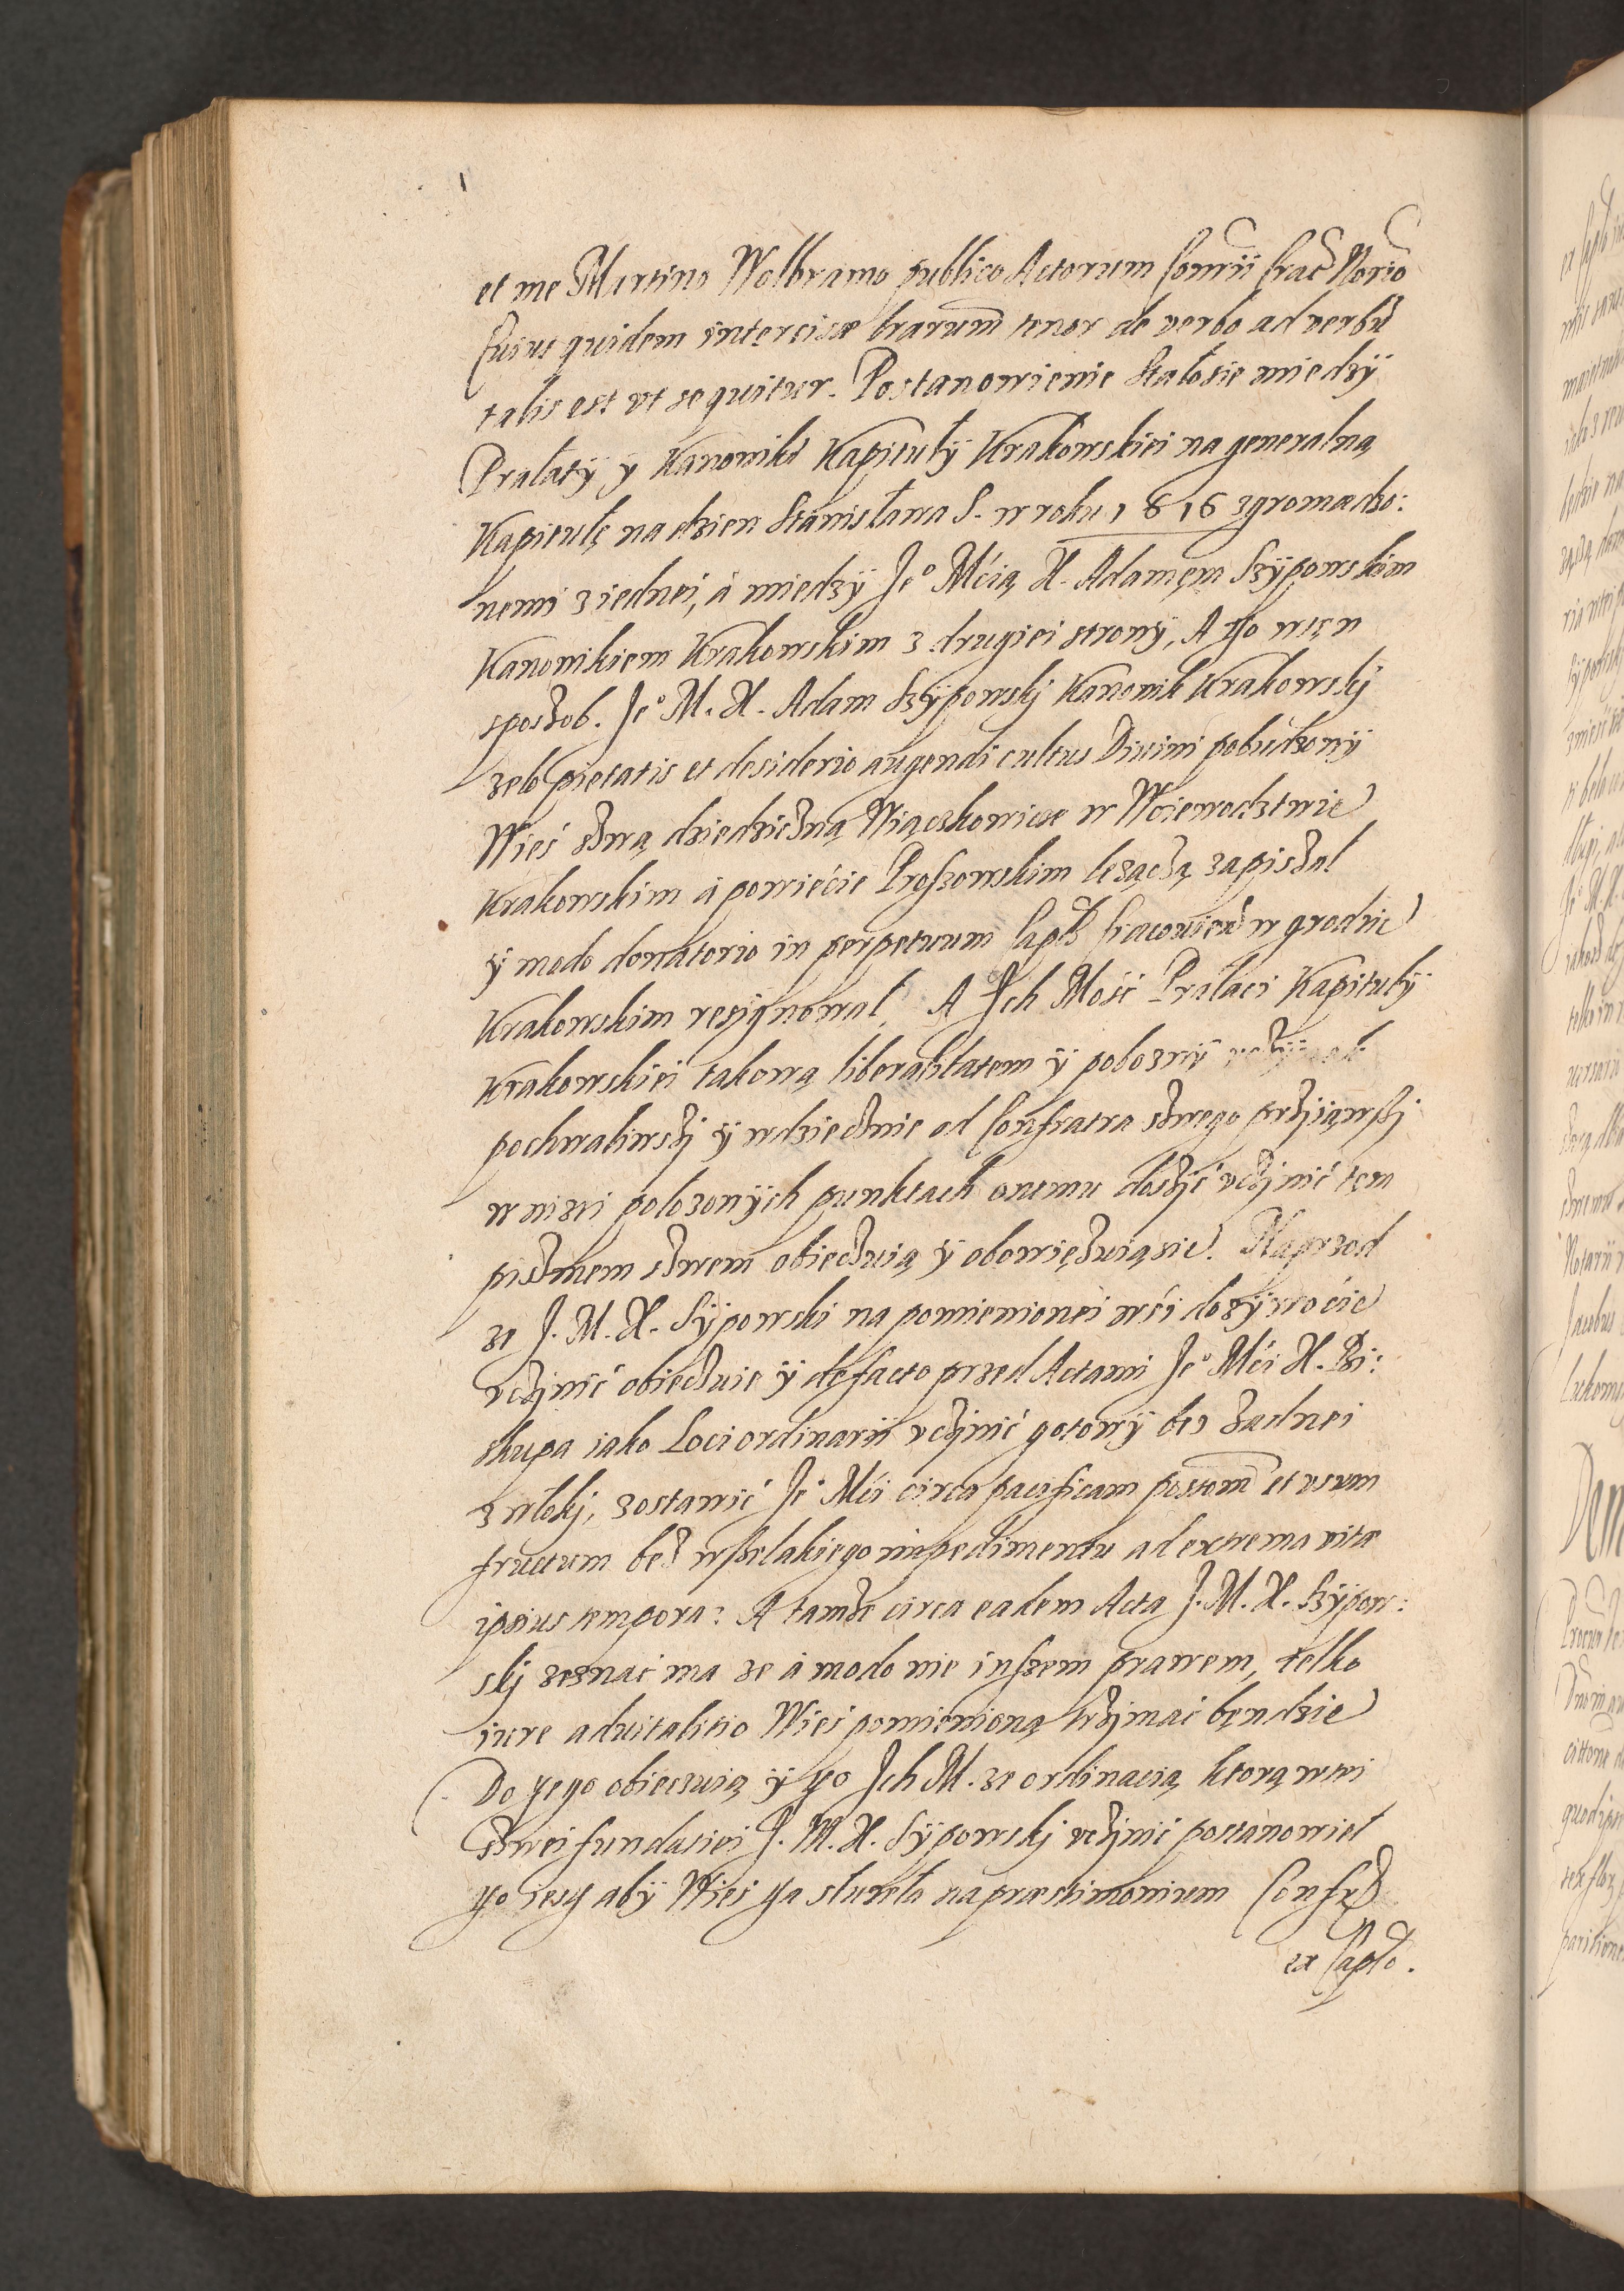 et me Martino Wolbramo publico Actorum Conrii Crac Norio
Cuius quidem intercisæ lrarum tenor de verbo ad verbu
talis est vt sequitur. Postanowienie stałosie miedzÿ
Prałatÿ y Kanoniki Kapitułÿ Krakowskiei na generalną
Kapitulę na dzien Stanisława S. w roku 1616 zgromadzo:
nemi z iednei, á miedzÿ Jeº Mcią X. Adamęm Szÿpowskim
Kanonikiem Krakowskim z drugiei stronÿ, A tho w tęn
sposzob. Jeº M. X. Adam Szÿpowskj Kanonik Krakowskj
zelo pietatis et desiderio augendi cultus Diuini pobudzonÿ
Wieś szwą dziedziczną Wiączkowicze w Woiewodztwie
Krakowskim á powiećie Proszowskim lezączą zapiszal
ÿ modo donatorio in perpetuum Caplo Cracouien w grodzie
Krakowskim resÿgnowal. A Jch Mość Prałaci Kapitułÿ
Krakowskiei takową liberalitatem ÿ poboznÿ
pochwaliwszj ÿ wdziecznie od Confratra szwego przjiąwszj
w nizei polozonÿch punktach onemu doszjć vczjnić tęm
piszmem szwem obieczuią ÿ obowięzuiąsie. Naprzod
ze J. M. X. Sÿpowski na pomienionei wśi dozÿwoćie
vczjnić obieczuie ÿ de facto przed Actami Jeº Mći X. Bi:
skupa iako Loci ordinarii vczjnić gotowÿ bes zadnei
zwlokj, zostawić Jeº Mći circa pacificam possiom et vsum
fructum bez wszelakiego impedimentu ad extrema vitæ
ipsius tempora: A tamze circa eadem Acta J. M. X. Szÿpow:
skj zeznać ma ze á modo nie inszem prawem, telko
iure aduitalitio Wieś pomienioną trzjmać bęndzie
Do tego obieczuią ÿ tho Jch M. ze ordinacią ktorą w tei
szwei fundaciei J. M. X. Sÿpowskj vczjnić postanowiel
tho iest abÿ Wieś ta słuzeła na præstimonium Confr
ex Caplo.